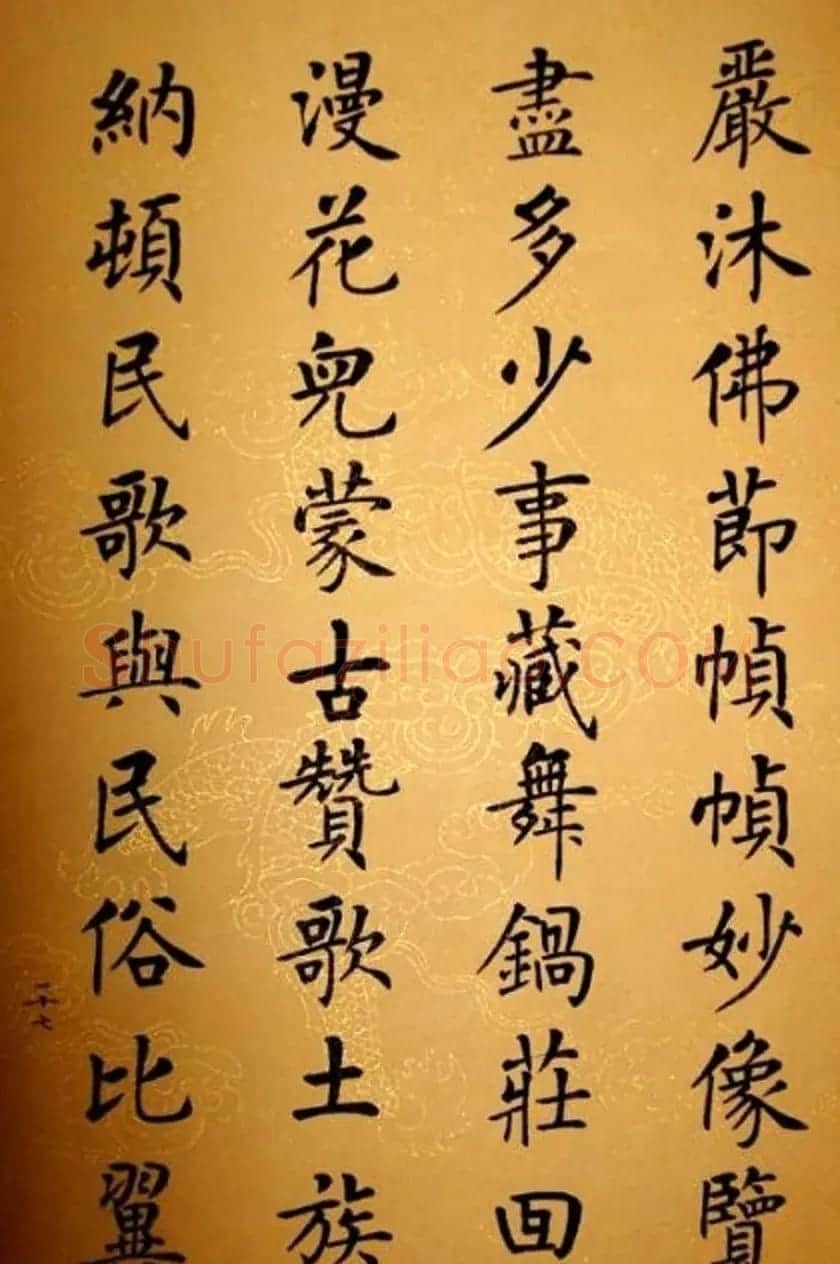 嚴沐佛節幀幀妙像覽
盡多少事藏舞鍋莊回
漫花兒蒙古贊歌土族
納頓民歌與民俗比翼
二十七
Shufaziliao.com